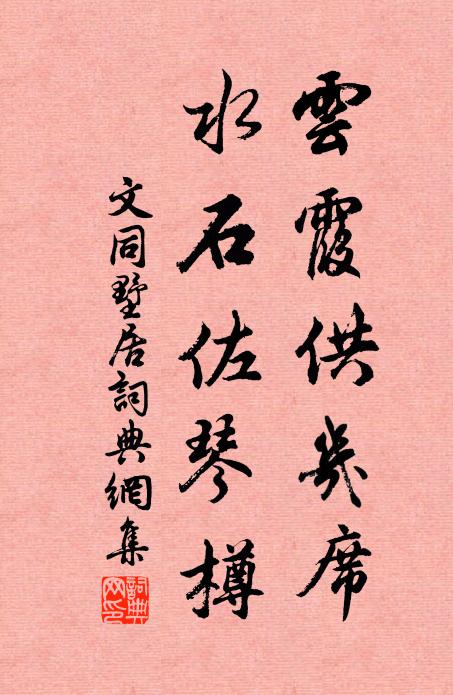 雲霞供幾席
水石佐琴樽
文同墅居詞典網集
詞典网印